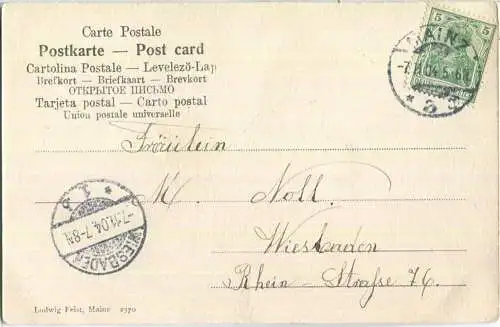 Carte Postale
Postkarte — Post card
Cartolina Postale — Levelezö-Lap
Brefkort — Briefkaart — Brevkort
ОТКРЫТОЕ ПИСЬМО
Tarjeta postal — Carto postal
Union postale universelle
5 5
MAINZ
04.5-6
* 3
Fräulein
M. Noll.
Wiesbaden
Rhein-Strasse 76.
* 1
-7.11.04.7-8N
WIESBADEN
Ludwig Feist, Mainz 2370